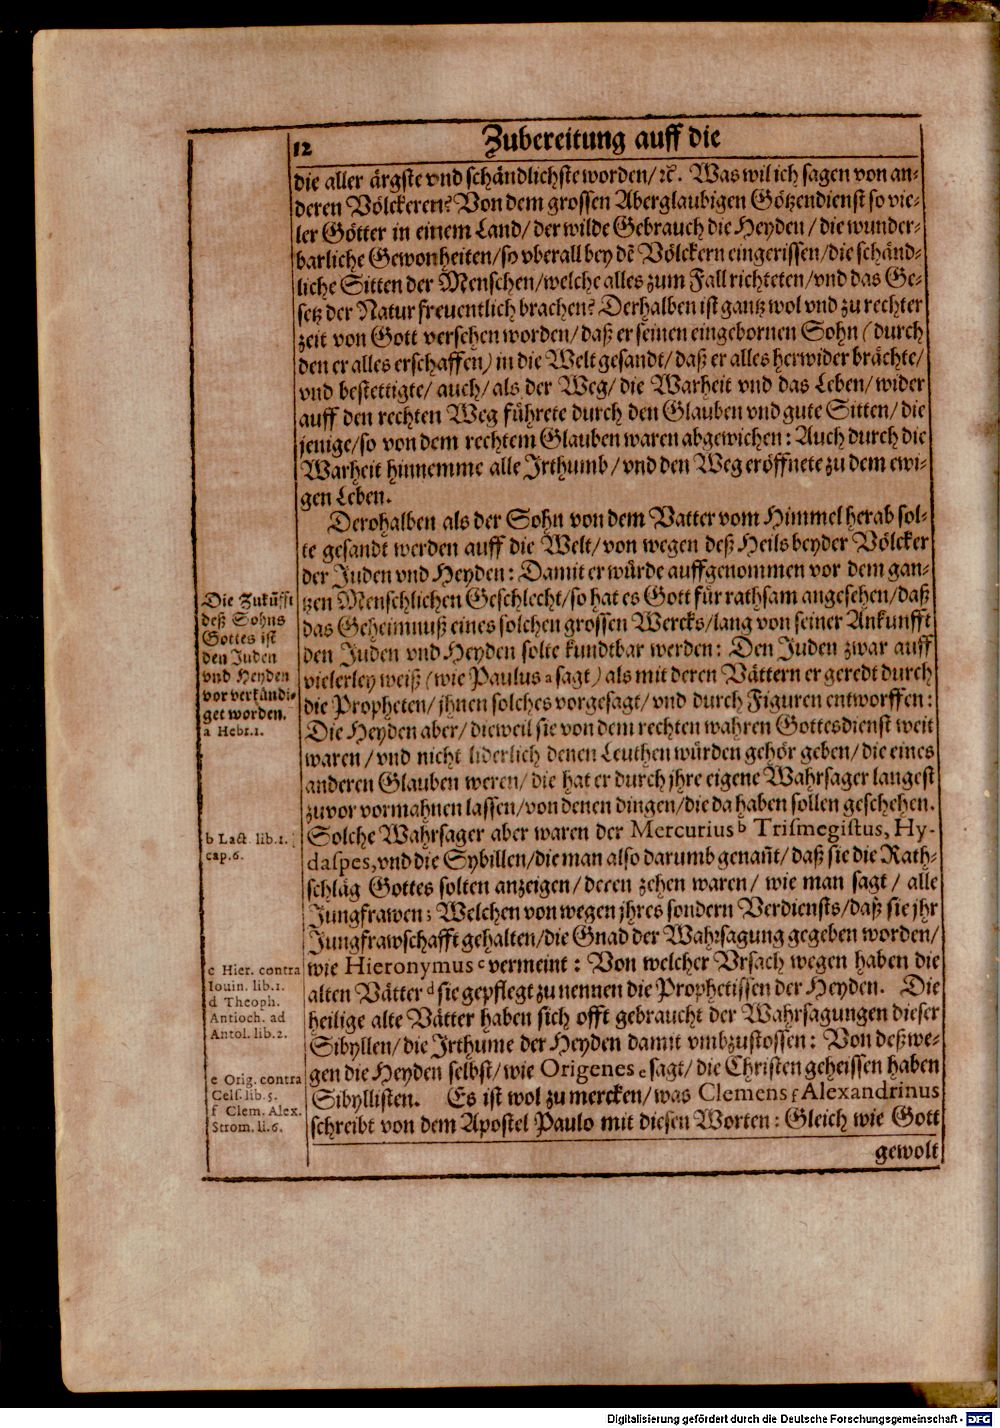 12
Zubereitung auff die
die aller ärgste vnd schändlichste worden/ ꝛc̃. Was wil ich sagen von an-
deren Völckeren? Von dem grossen Aberglaubigen Götzendienst so vie-
ler Götter in einem Land/ der wilde Gebrauch die Heyden/ die wunder-
barliche Gewonheiten/ so vberall bey dē Völckern eingerissen/ die schänd-
liche Sitten der Menschen/ welche alles zum Fall richteten/ vnd das Ge-
setz der Natur freuentlich brachen? Derhalben ist gantz wol vnd zu rechter
zeit von Gott versehen worden/ daß er seinen eingebornen Sohn (durch
den er alles erschaffen) in die Welt gesandt/ daß er alles herwider brächte/
vnd bestettigte/ auch/ als der Weg/ die Warheit vnd das Leben/ wider
auff den rechten Weg führete durch den Glauben vnd gute Sitten/ die
jenige/ so von dem rechtem Glauben waren abgewichen: Auch durch die
Warheit hinnemme alle Irthumb/ vnd den Weg eröffnete zu dem ewi-
gen Leben.
Derohalben als der Sohn von dem Vatter vom Himmel herab sol-
te gesandt werden auff die Welt/ von wegen deß Heils beyder Völcker
der Juden vnd Heyden: Damit er würde auffgenommen vor dem gan-
tzen Menschlichen Geschlecht/ so hat es Gott für rathsam angesehen/ daß
das Geheimnuß eines solchen grossen Wercks/ lang von seiner Ankunfft
den Juden vnd Heyden solte kundtbar werden: Den Juden zwar auff
vielerley weiß (wie Paulus a sagt) als mit deren Vättern er geredt durch
die Propheten/ jhnen solches vorgesagt/ vnd durch Figuren entworffen:
Die Heyden aber/ dieweil sie von dem rechten wahren Gottesdienst weit
waren/ vnd nicht liderlich denen Leuthen würden gehör geben/ die eines
anderen Glauben weren/ die hat er durch jhre eigene Wahrsager langest
zuvor vormahnen lassen/ von denen dingen/ die da haben sollen geschehen.
Solche Wahrsager aber waren der Mercurius b Trismegistus, Hy-
daspes, vnd die Sybillen/ die man also darumb genañt/ daß sie die Rath-
schläg Gottes solten anzeigen/ deren zehen waren/ wie man sagt/ alle
Jungfrawen; Welchen von wegen jhres sondern Verdiensts/ daß sie jhr
Jungfrawschafft gehalten/ die Gnad der Wahrsagung gegeben worden/
wie Hieronymus c vermeint: Von welcher Vrsach wegen haben die
alten Vätter d sie gepflegt zu nennen die Prophetissen der Heyden. Die
heilige alte Vätter haben sich offt gebraucht der Wahrsagungen dieser
Sibyllen/ die Irthume der Heyden damit vmbzustossen: Von deßwe-
gen die Heyden selbst/ wie Origenes e sagt/ die Christen geheissen haben
Sibyllisten. Es ist wol zu mercken/ was Clemens f Alexandrinus
schreibt von dem Apostel Paulo mit diesen Worten: Gleich wie Gott
gewolt
Die Zukūfft
deß Sohns
Gottes ist
den Juden
vnd Heyden
vor verkündi-
get worden.
a Hebr.1.
b Lact. lib.1.
cap.6.
c Hier. contra
Iouin. lib.1.
d Theoph.
Antioch. ad
Antol. lib.2.
e Orig. contra
Cels. lib.5.
f Clem. Alex.
Strom. li.6.
Digitalisierung gefördert durch die Deutsche Forschungsgemeinschaft - DFG